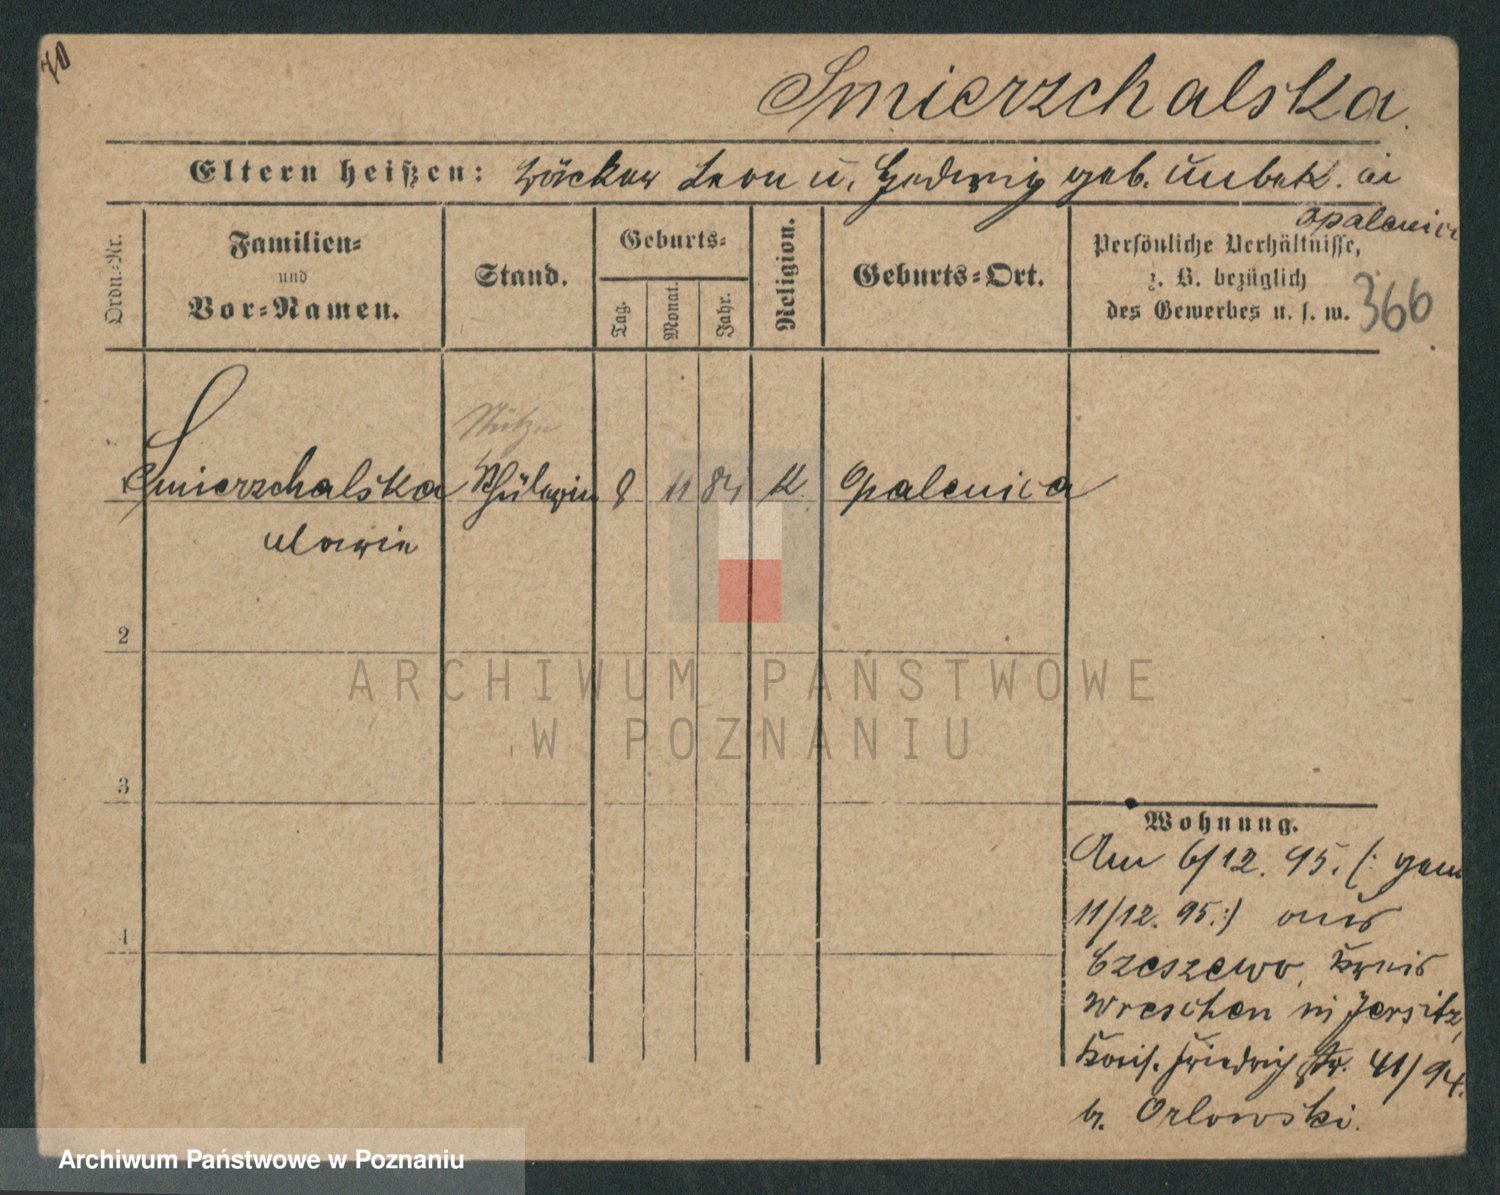 70
Smierzchalska
Eltern heißen: Bäcker Leon u. Hedwig geb. unbek. in
Opalenica
Ordn.=Nr.
Familien=
und
Vor=Namen.
Stand.
Geburts=
Tag.
Monat.
Jahr.
Religion.
Geburts=Ort.
Persönliche Verhältnisse,
z. B. bezüglich
des Gewerbes u. s. w.
366
Stütze
Smierzchalska Schülerin 8 11 84 K. Opalenica
Marie
2
3
4
Wohnung.
Am 6/12. 95. (: gem
11/12. 95.:) aus
Czeszewo, Kreis
Wreschen in Jersitz,
Kais. Friedrich Str. 41/94.
b. Orlowski.
ARCHIWUM PAŃSTWOWE
W POZNANIU
Archiwum Państwowe w Poznaniu